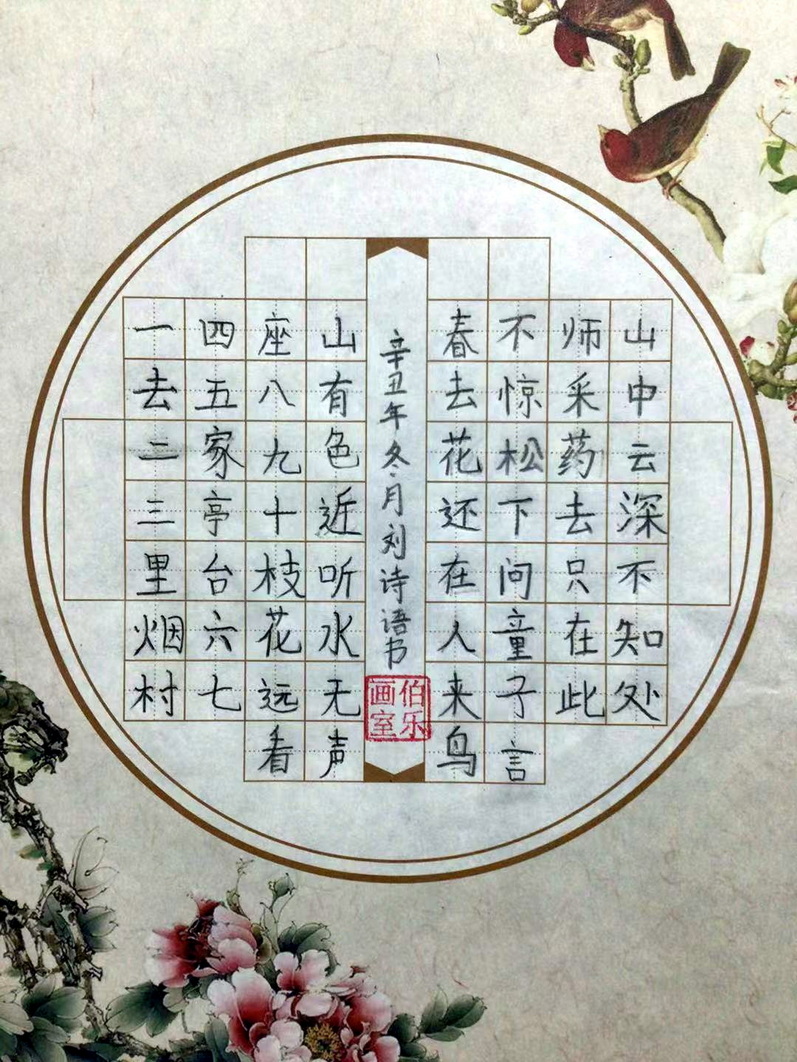 一去二三里烟村
四五家亭台六七
座八九十枝花远看
山有色近听水无声
辛丑年冬月刘诗语书
伯乐
画室
春去花还在人来鸟
不惊松下问童子言
师采药去只在此
山中云深不知处